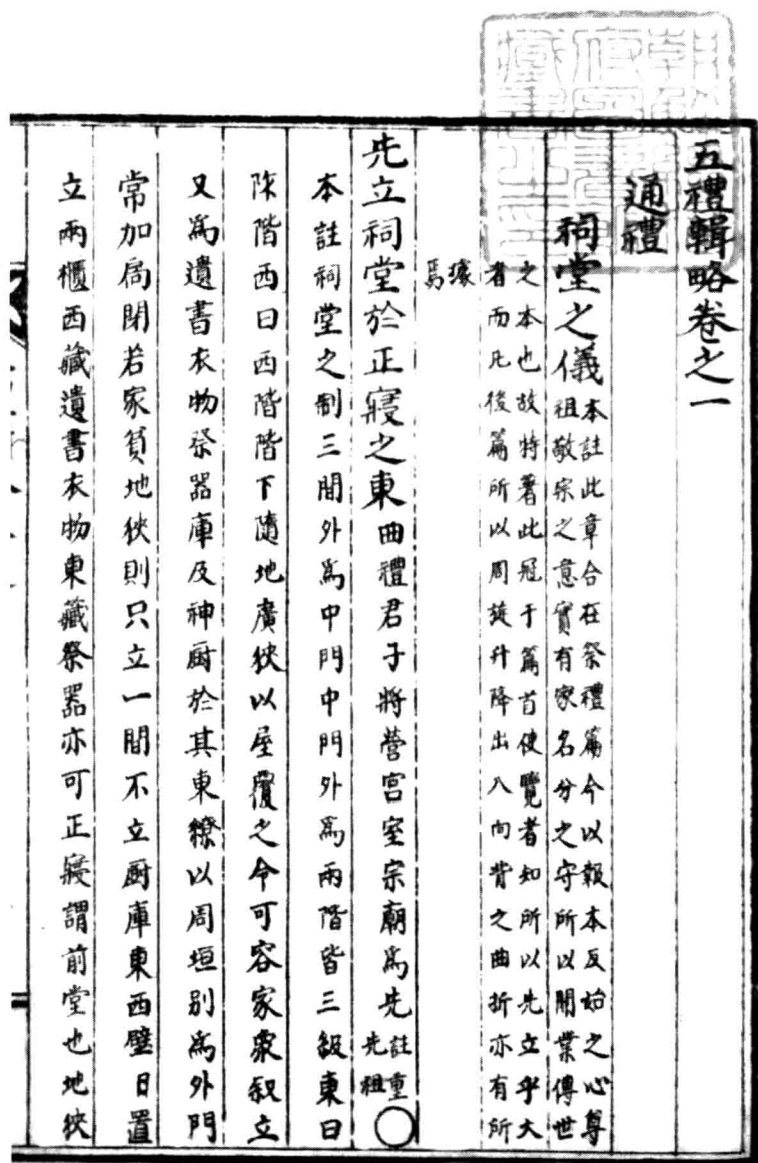 五禮輯略卷之一
通禮
祠堂之儀 本註此章合在祭禮篇今以報本反始之心尊
祖敬宗之意實有家名分之守所以開業傳世
之本也故特著此冠于篇首使覽者知所以先立乎大
者而凡後篇所以周旋升降出入向背之曲折亦有所
據
焉
先立祠堂於正寢之東 曲禮君子將營宮室宗廟爲先 註重
先祖○
本註祠堂之制三間外爲中門中門外爲兩階皆三級東曰
阼階西曰西階階下隨地廣狹以屋覆之令可容家衆叙立
又爲遺書衣物祭器庫及神厨於其東繚以周垣别爲外門
常加扄閉若家貧地狹則只立一間不立厨庫東西壁日置
立兩櫃西藏遺書衣物東藏祭器亦可正寢謂前堂也地狹